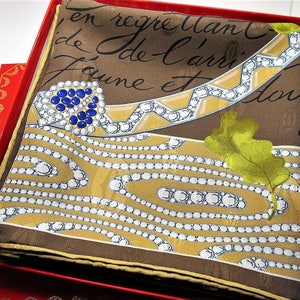 en regrettant
de de l'arri
Jaune et dou